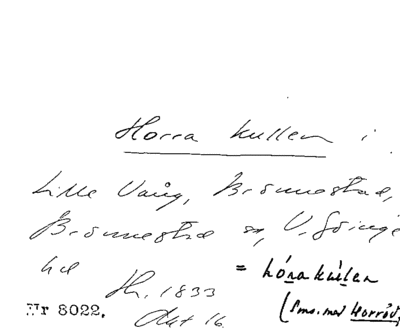 Horra kullen i
Lille Vång, Brönnestad,
Brönnestad sn, V. Göinge
hd Th. 1833
= hóra kúllen
Nr 8022. Akt 16. (Sms. med Horröd,